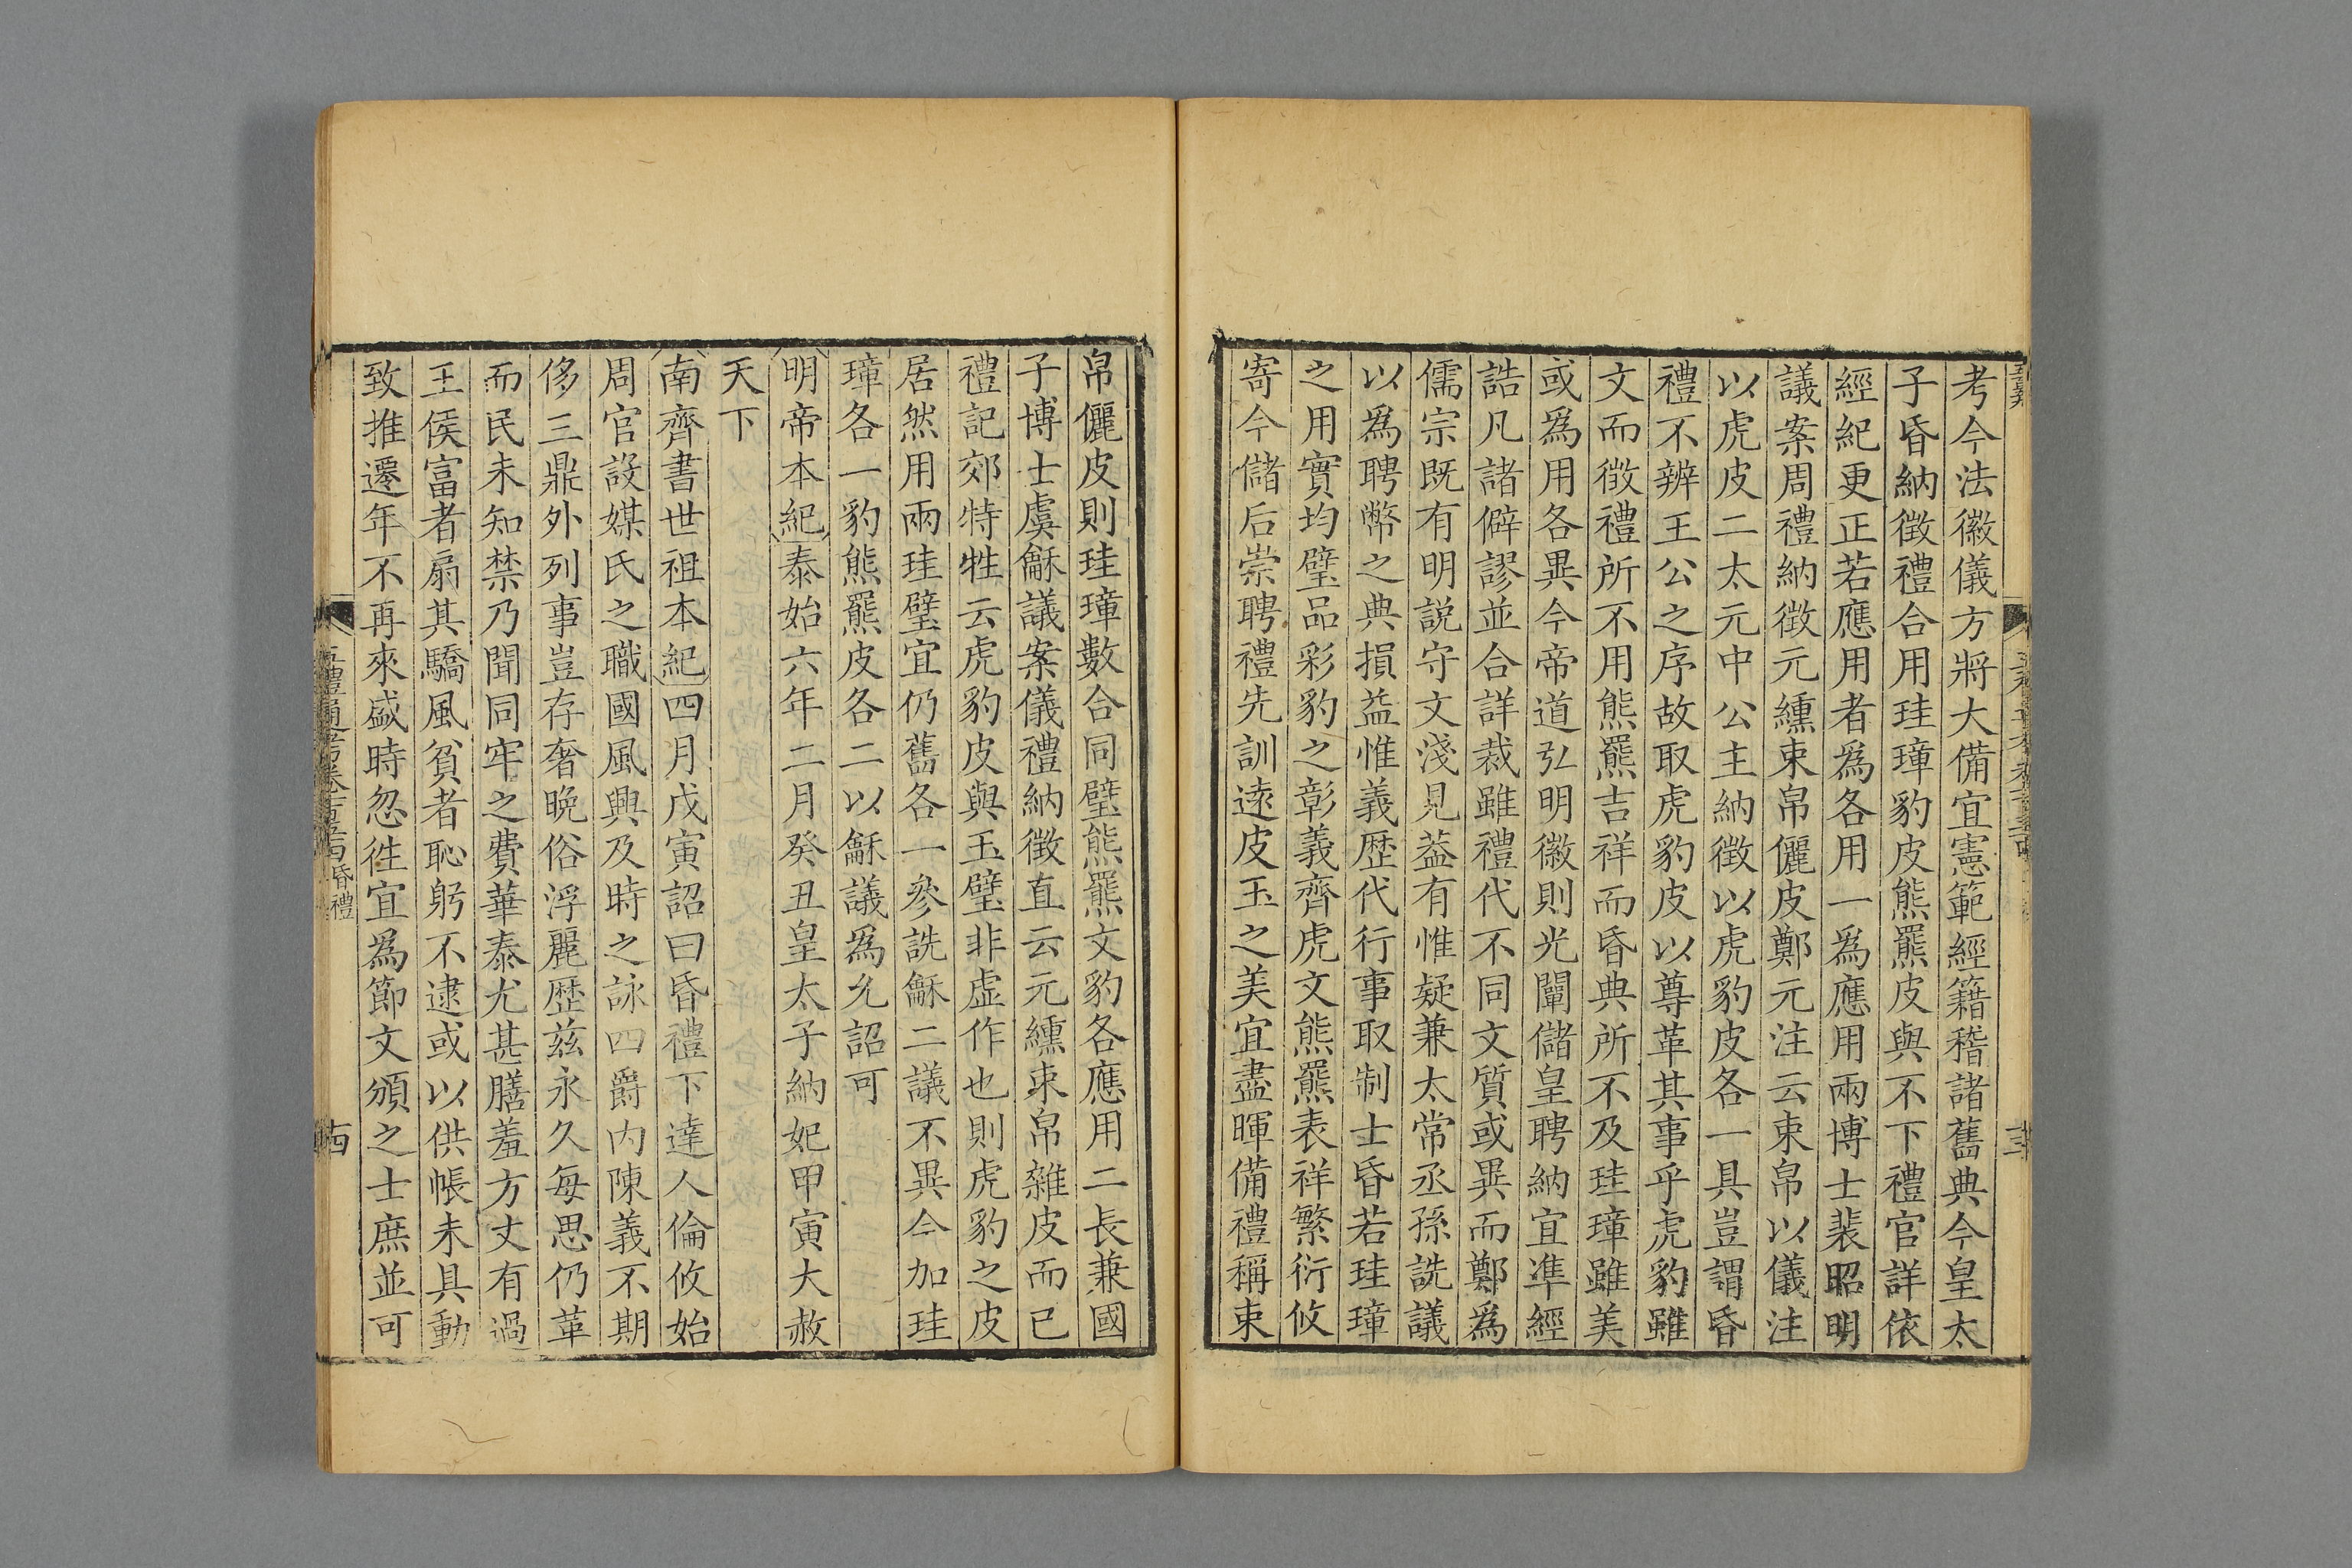 考今法徽儀方將大備宜憲範經籍稽諸舊典今皇太
子昏納徵禮合用珪璋豹皮熊羆皮與不下禮官詳依
經紀更正若應用者爲各用一爲應用兩博士裴昭明
議案周禮納徵元纁束帛儷皮鄭元注云束帛以儀注
以虎皮二太元中公主納徵以虎豹皮各一具豈謂昏
禮不辨王公之序故取虎豹皮以尊革其事乎虎豹雖
文而徵禮所不用熊羆吉祥而昏典所不及珪璋雖美
或爲用各異今帝道弘明徽則光闡儲皇聘納宜凖經
誥凡諸僻謬並合詳裁雖禮代不同文質或異而鄭爲
儒宗既有明説守文淺見葢有惟疑兼太常丞孫詵議
以爲聘幣之典損益惟義歷代行事取制士昏若珪璋
之用實均璧品彩豹之彰義齊虎文熊羆表祥繁衍攸
寄今儲后崇聘禮先訓遠皮玉之美宜盡暉備禮稱束
帛儷皮則珪璋數合同璧熊羆文豹各應用二長兼國
子博士虞龢議案儀禮納徵直云元纁束帛雜皮而已
禮記郊特牲云虎豹皮與玉璧非虛作也則虎豹之皮
居然用兩珪璧宜仍舊各一參詵龢二議不異今加珪
璋各一豹熊羆皮各二以龢議爲允詔可
明帝本紀泰始六年二月癸丑皇太子納妃甲寅大赦
天下
南齊書世祖本紀四月戊寅詔曰昏禮下達人倫攸始
周官設媒氏之職國風興及時之詠四爵內陳義不期
侈三鼎外列事豈存奢晚俗浮麗歷茲永久每思仍革
而民未知禁乃聞同牢之費華泰尤甚膳羞方丈有過
王侯富者扇其驕風貧者恥躬不逮或以供帳未具動
致推遷年不再來盛時忽徃宜爲節文頒之士庶並可
五禮通考卷一百五十四 昏禮
十四